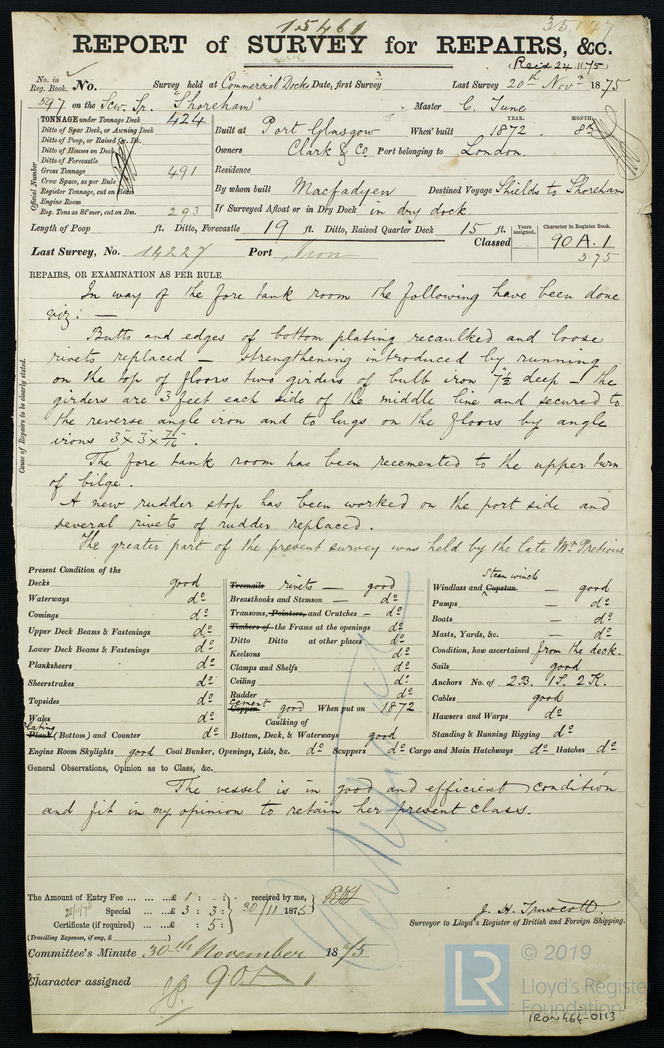 15461
REPORT of SURVEY for REPAIRS, &c.
(Recd 24.11.75)
No. in Reg. Book. No. Survey held at Commercial Docks Date, first Survey Last Survey 20th Novr 1875
597 on the Scw. Sr. "Shoreham" Master C. June
TONNAGE under Tonnage Deck 424
Ditto of Spar Deck, or Awning Deck
Ditto of Poop, or Raised Qr. Dk.
Ditto of Houses on Deck
Ditto of Forecastle
Gross Tonnage 491
Crew Space, as per Rule
Register Tonnage, cut on Beam
Engine Room
Reg. Tons as St'mer, cut on Bm. 293
Official Number
Built at Port Glasgow When built YEAR. 1872. MONTH. 8th
Owners Clark & Co Port belonging to London.
Residence
By whom built Macfadyen Destined Voyage Shields to Shoreham
If Surveyed Afloat or in Dry Dock in dry dock
Length of Poop ft. Ditto, Forecastle 19 ft. Ditto, Raised Quarter Deck 15 ft.
Years assigned. Character in Register Book.
Classed 90 A.1
3.75
Last Survey, No. 14227 Port Iron
REPAIRS, OR EXAMINATION AS PER RULE
Cause of Repairs to be clearly stated.
In way of the fore tank room the following have been done
viz: —
Butts and edges of bottom plating recaulked and loose
rivets replaced — strengthening introduced by running
on the top of floors two girders of bulb iron 7½ deep — the
girders are 3 feet each side of the middle line and secured to
the reverse angle iron and to lugs on the floors by angle
irons 3" x 3" x 7/16".
The fore tank room has been recemented to the upper turn
of bilge.
A new rudder stop has been worked on the port side and
several rivets of rudder replaced.
The greater part of the present survey was held by the late Mr. Pretious
Present Condition of the
Decks good
Waterways do
Comings do
Upper Deck Beams & Fastenings do
Lower Deck Beams & Fastenings do
Planksheers do
Sheerstrakes do
Topsides do
Wales do
Plating Plank (Bottom) and Counter do
Treenails rivets — good
Breasthooks and Stemson — do
Transoms, Pointers, and Crutches — do
Timbers of the Frame at the openings do
Ditto Ditto at other places do
Keelsons do
Clamps and Shelfs do
Ceiling do
Rudder do
Cement Copper good When put on 1872
Caulking of
Bottom, Deck, & Waterways good
Steam winch
Windlass and Capstan — good
Pumps — do
Boats — do
Masts, Yards, &c. — do
Condition, how ascertained from the deck.
Sails good
Anchors No. of 2 B. 1 S. 2 K.
Cables good
Hawsers and Warps do
Standing & Running Rigging do
Engine Room Skylights good Coal Bunker, Openings, Lids, &c. do Scuppers do Cargo and Main Hatchways do Hatches do
General Observations, Opinion as to Class, &c.
The vessel is in good and efficient condition
and fit in my opinion to retain her present class.
The Amount of Entry Fee ... £ 1 : - :
Special ... £ 3 : 3 :
Certificate (if required) ... £ : 5 :
received by me,
30/11 1875
(Travelling Expenses, if any, £
J. H. Truscott.
Surveyor to Lloyd's Register of British and Foreign Shipping.
Committee's Minute 30th November 1875
Character assigned 90 A 1
© 2019
LR
Lloyd's Register
Foundation
IRON 464-0113